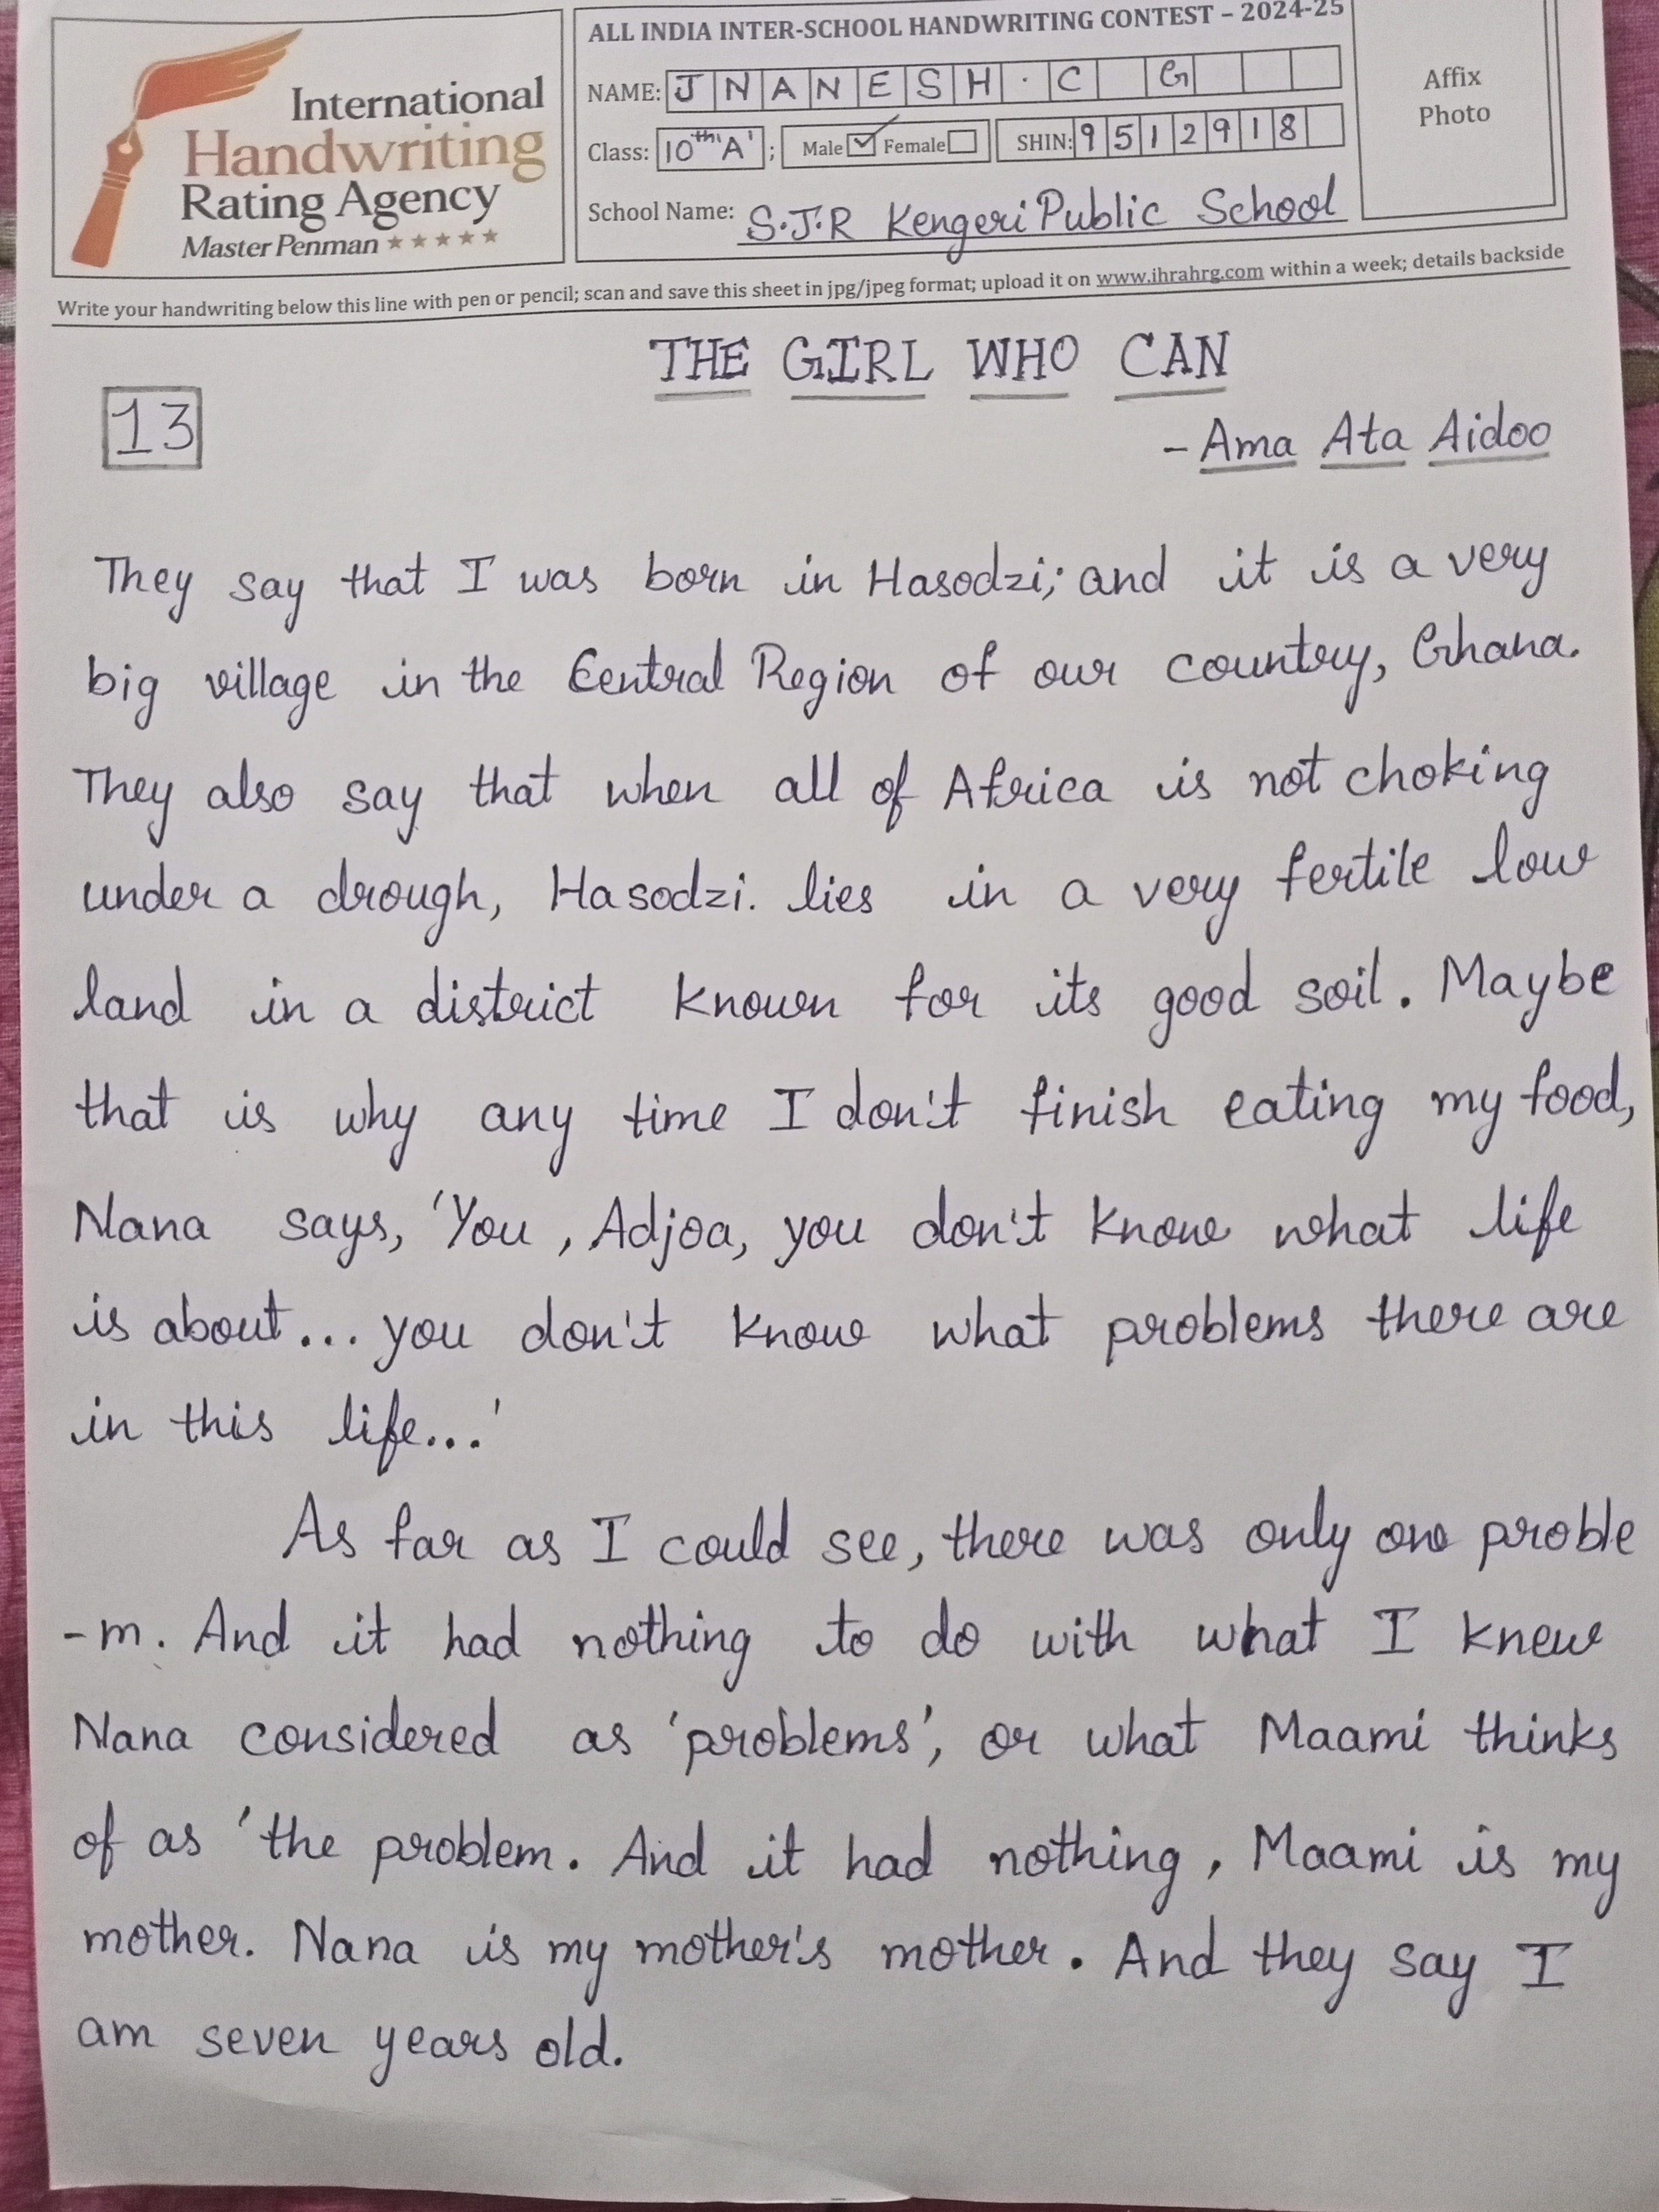 ALL INDIA INTER-SCHOOL HANDWRITING CONTEST – 2024-25
International
Handwriting
Rating Agency
Master Penman ★★★★★
NAME: JNANESH. C G
Class: 10th 'A' ; Male ☑ Female ☐ SHIN: 9512918
School Name: S.J.R Kengeri Public School
Affix
Photo
Write your handwriting below this line with pen or pencil; scan and save this sheet in jpg/jpeg format; upload it on www.ihrahrg.com within a week; details backside
THE GIRL WHO CAN
13
- Ama Ata Aidoo
They say that I was born in Hasodzi; and it is a very
big village in the Central Region of our country, Ghana.
They also say that when all of Africa is not choking
under a drough, Hasodzi. lies in a very fertile low
land in a district known for its good soil. Maybe
that is why any time I don't finish eating my food,
Nana says, 'You, Adjoa, you don't know what life
is about... you don't know what problems there are
in this life...'
As far as I could see, there was only one proble
-m. And it had nothing to do with what I knew
Nana considered as 'problems', or what Maami thinks
of as 'the problem. And it had nothing, Maami is my
mother. Nana is my mother's mother. And they say I
am seven years old.